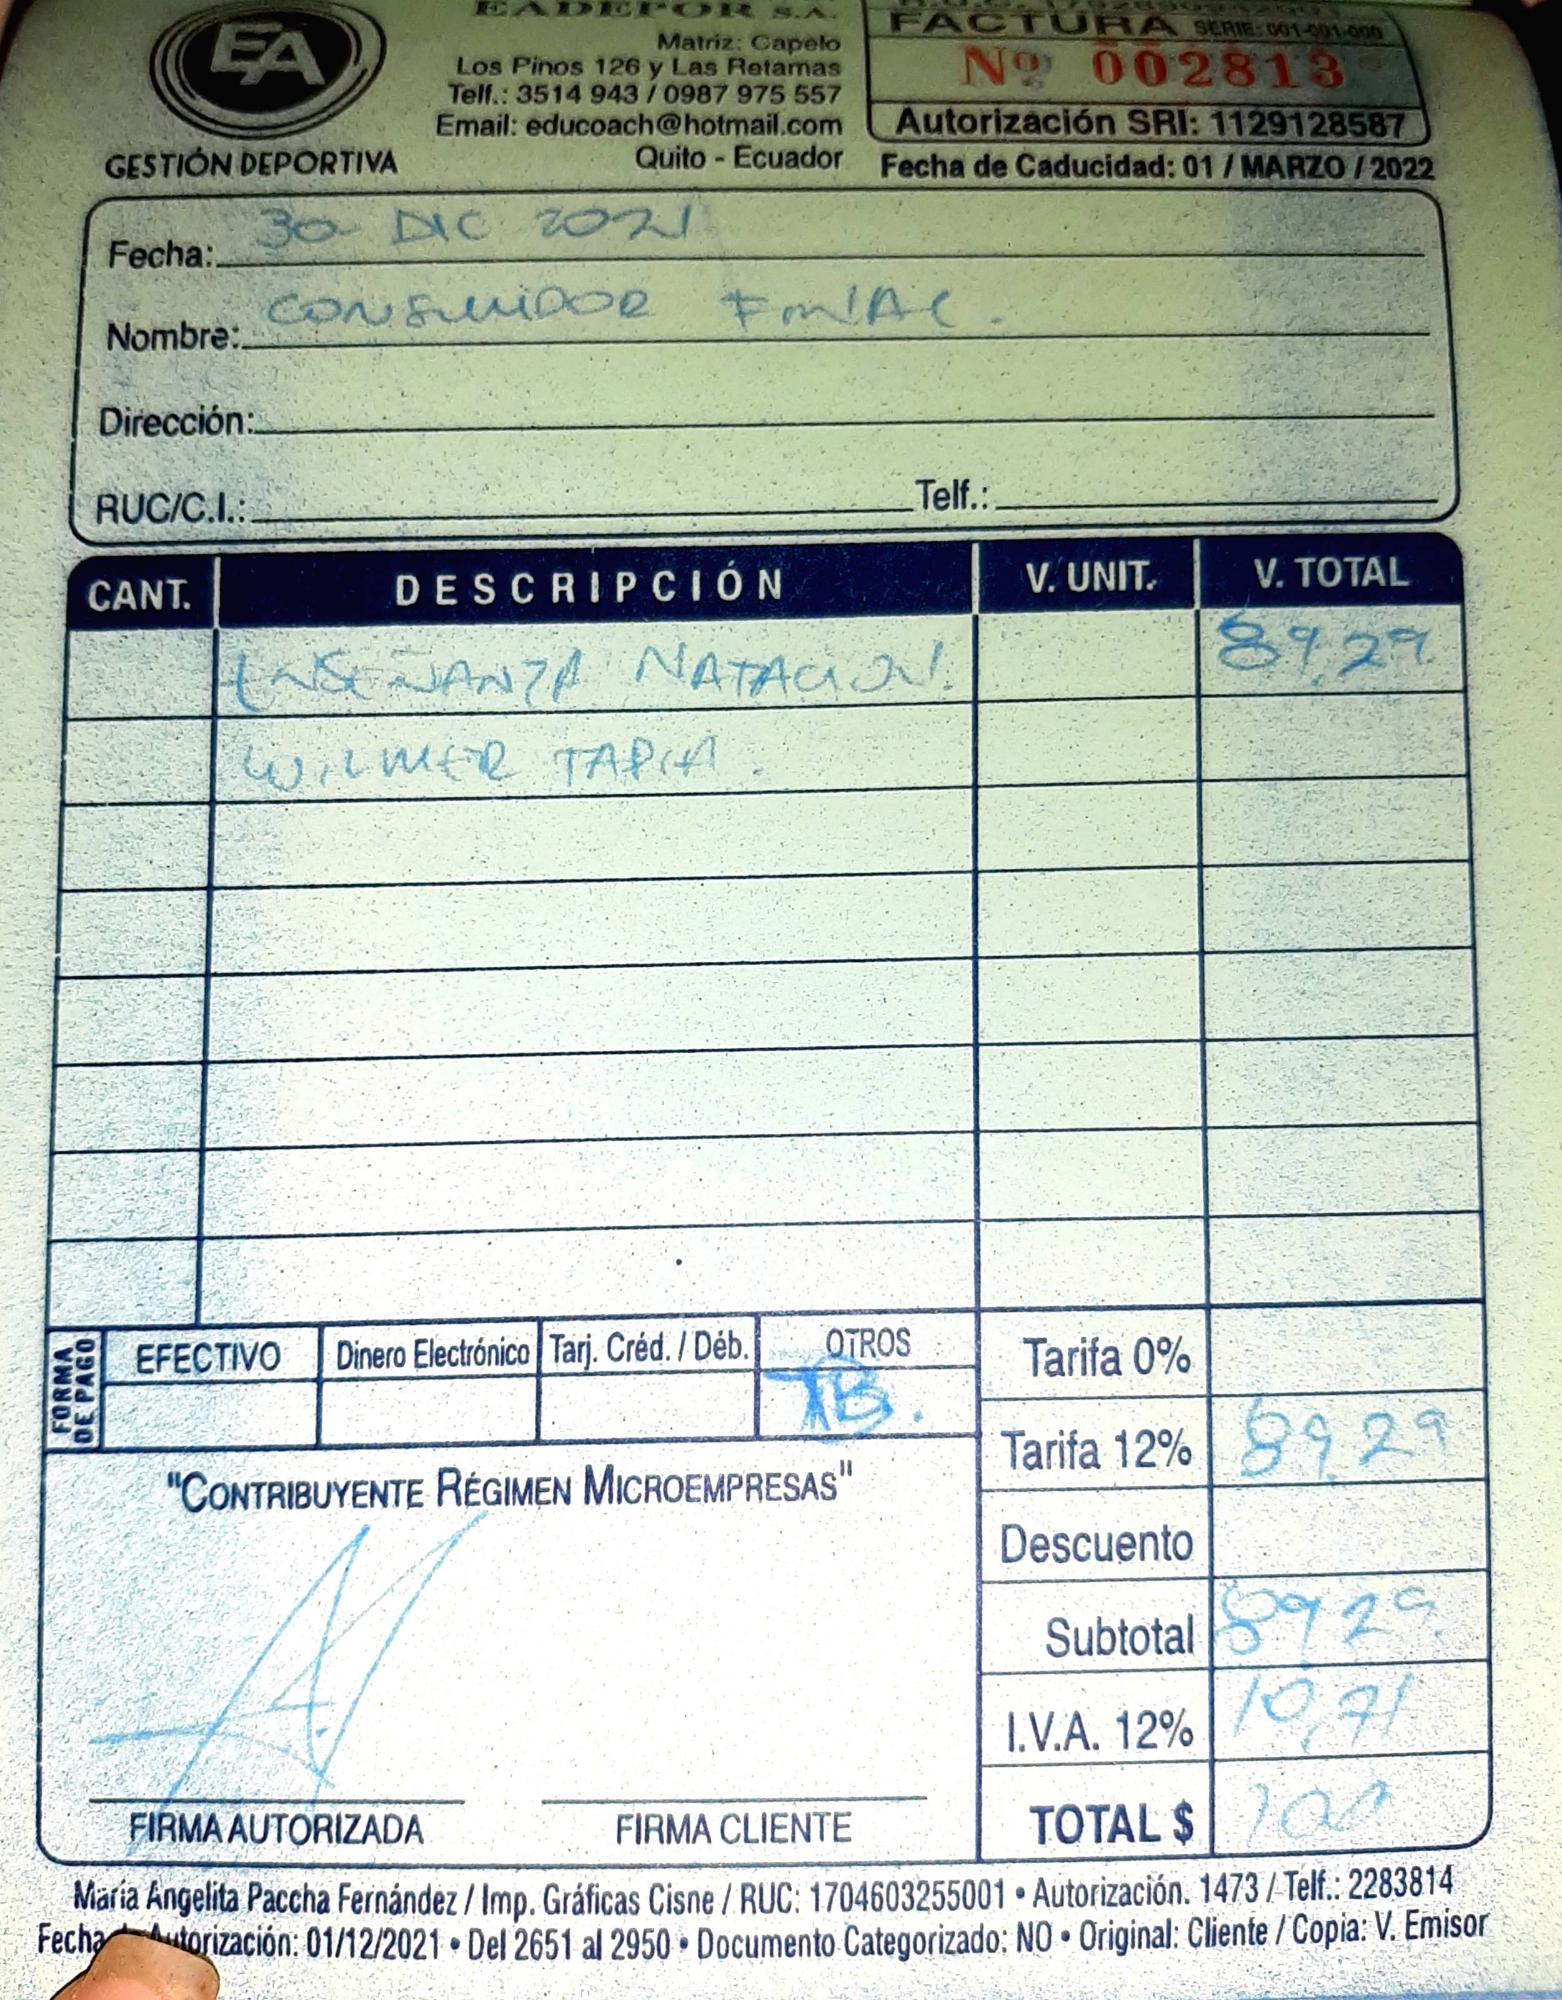 EADEPOR S.A.
EA
GESTIÓN DEPORTIVA
Matriz: Capelo
Los Pinos 126 y Las Retamas
Telf.: 3514 943 / 0987 975 557
Email: educoach@hotmail.com
Quito - Ecuador
FACTURA SERIE: 001-001-000
Nº 002813
Autorización SRI: 1129128587
Fecha de Caducidad: 01 / MARZO / 2022
Fecha: 30 DIC 2021
Nombre: CONSUMIDOR FINAL.
Dirección:
RUC/C.I.: Telf.:
CANT. DESCRIPCIÓN V. UNIT. V. TOTAL
ENSEÑANZA NATACION. 89.29
WILMER TAPIA.
FORMA DE PAGO
EFECTIVO Dinero Electrónico Tarj. Créd. / Déb. OTROS
TB.
Tarifa 0%
Tarifa 12% 89.29
Descuento
Subtotal 89 29
I.V.A. 12% 10,71
TOTAL $ 100
"CONTRIBUYENTE RÉGIMEN MICROEMPRESAS"
FIRMA AUTORIZADA FIRMA CLIENTE
María Angelita Paccha Fernández / Imp. Gráficas Cisne / RUC: 1704603255001 • Autorización. 1473 / Telf.: 2283814
Fecha Autorización: 01/12/2021 • Del 2651 al 2950 • Documento Categorizado: NO • Original: Cliente / Copia: V. Emisor